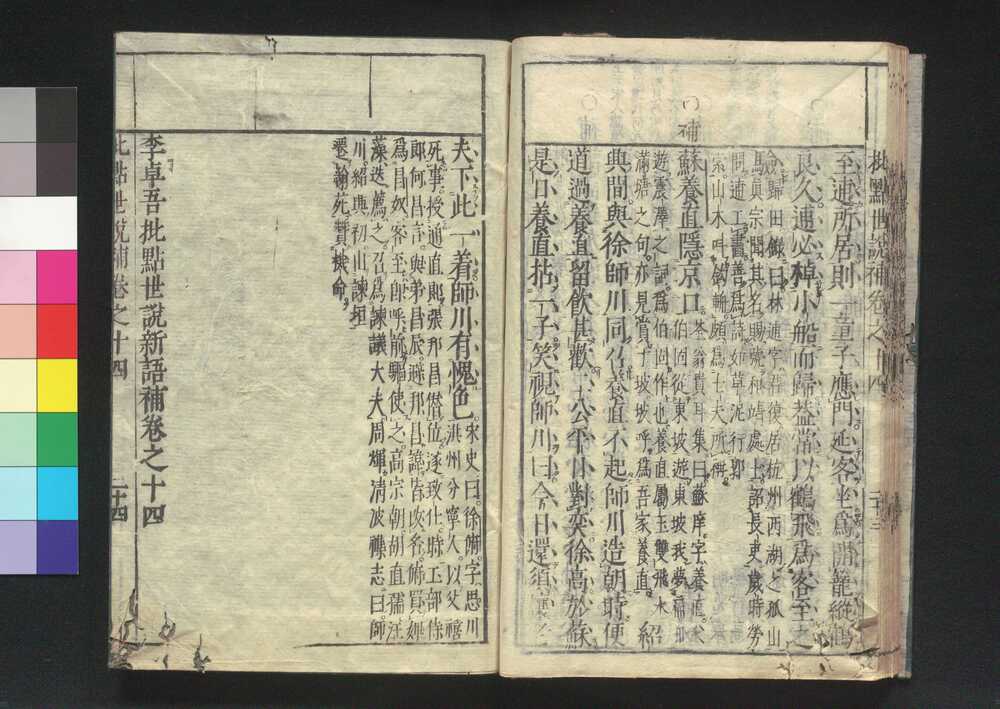 批點世說補卷之十四
二十三
至逋所居則一童子應門延客坐爲開籠縱鶴
良久逋必棹小船而歸葢常以鶴飛爲客至之
歸田錄曰林逋字居杭州西湖之孤山
眞宗聞其名賜號和靖處士詔長吏歲時勞
問逋工畫善爲詩如草泥行郭
索山木叫鉤輈頗爲士大夫所稱
補
蘇養直隱京口
苕翁貴耳集曰蘇庠字養直
伯固從東坡遊東坡我夢扁舟
遊震澤之詞爲伯固作也養直屬玉雙飛水
滿塘之句亦見賞于坡坡呼爲吾家養直
紹
興間與徐師川同召養直不起師川造朝時便
道過養直留飲甚歡二公平日對奕徐高於蘇
是日養直拈一子笑視師川曰今日還須
夫下此一着師川有愧色
宋史曰徐俯字師川
洪州分寧人以父禧
死事授通直郎張邦昌僭位遂致仕時工部侍
郎何昌言與弟昌辰避邦昌諱皆改名俯買婢
爲昌奴客至卽呼前驅使之高宗朝胡直孺汪
藻迭薦之召爲諫議大夫周煇淸波雜志曰師
川紹興初由諫垣
遷翰苑贊機命
李卓吾批點世說新語補卷之十四
批點世說補卷之十四
二十四